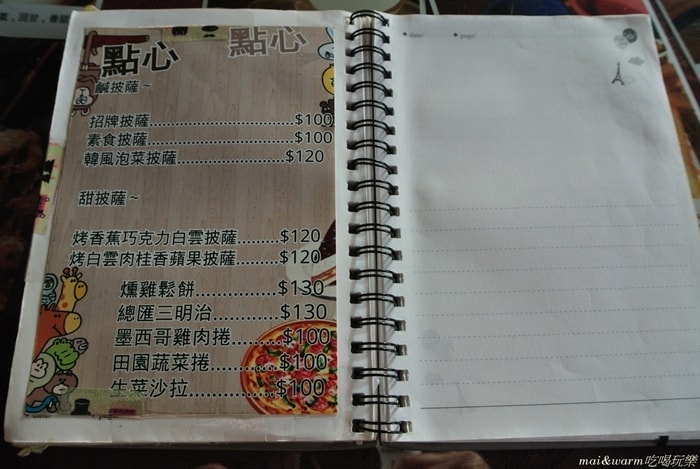 點心 點心
鹹披薩~
招牌披薩..............................$100
素食披薩..............................$100
韓風泡菜披薩......................$120
甜披薩~
烤香蕉巧克力白雲披薩.........$120
烤白雲肉桂香蘋果披薩.........$120
燻雞鬆餅...............$130
總匯三明治............$130
墨西哥雞肉捲.........$100
田園蔬菜捲............$100
生菜沙拉...............$100
date/ page/
mai&warm吃喝玩樂